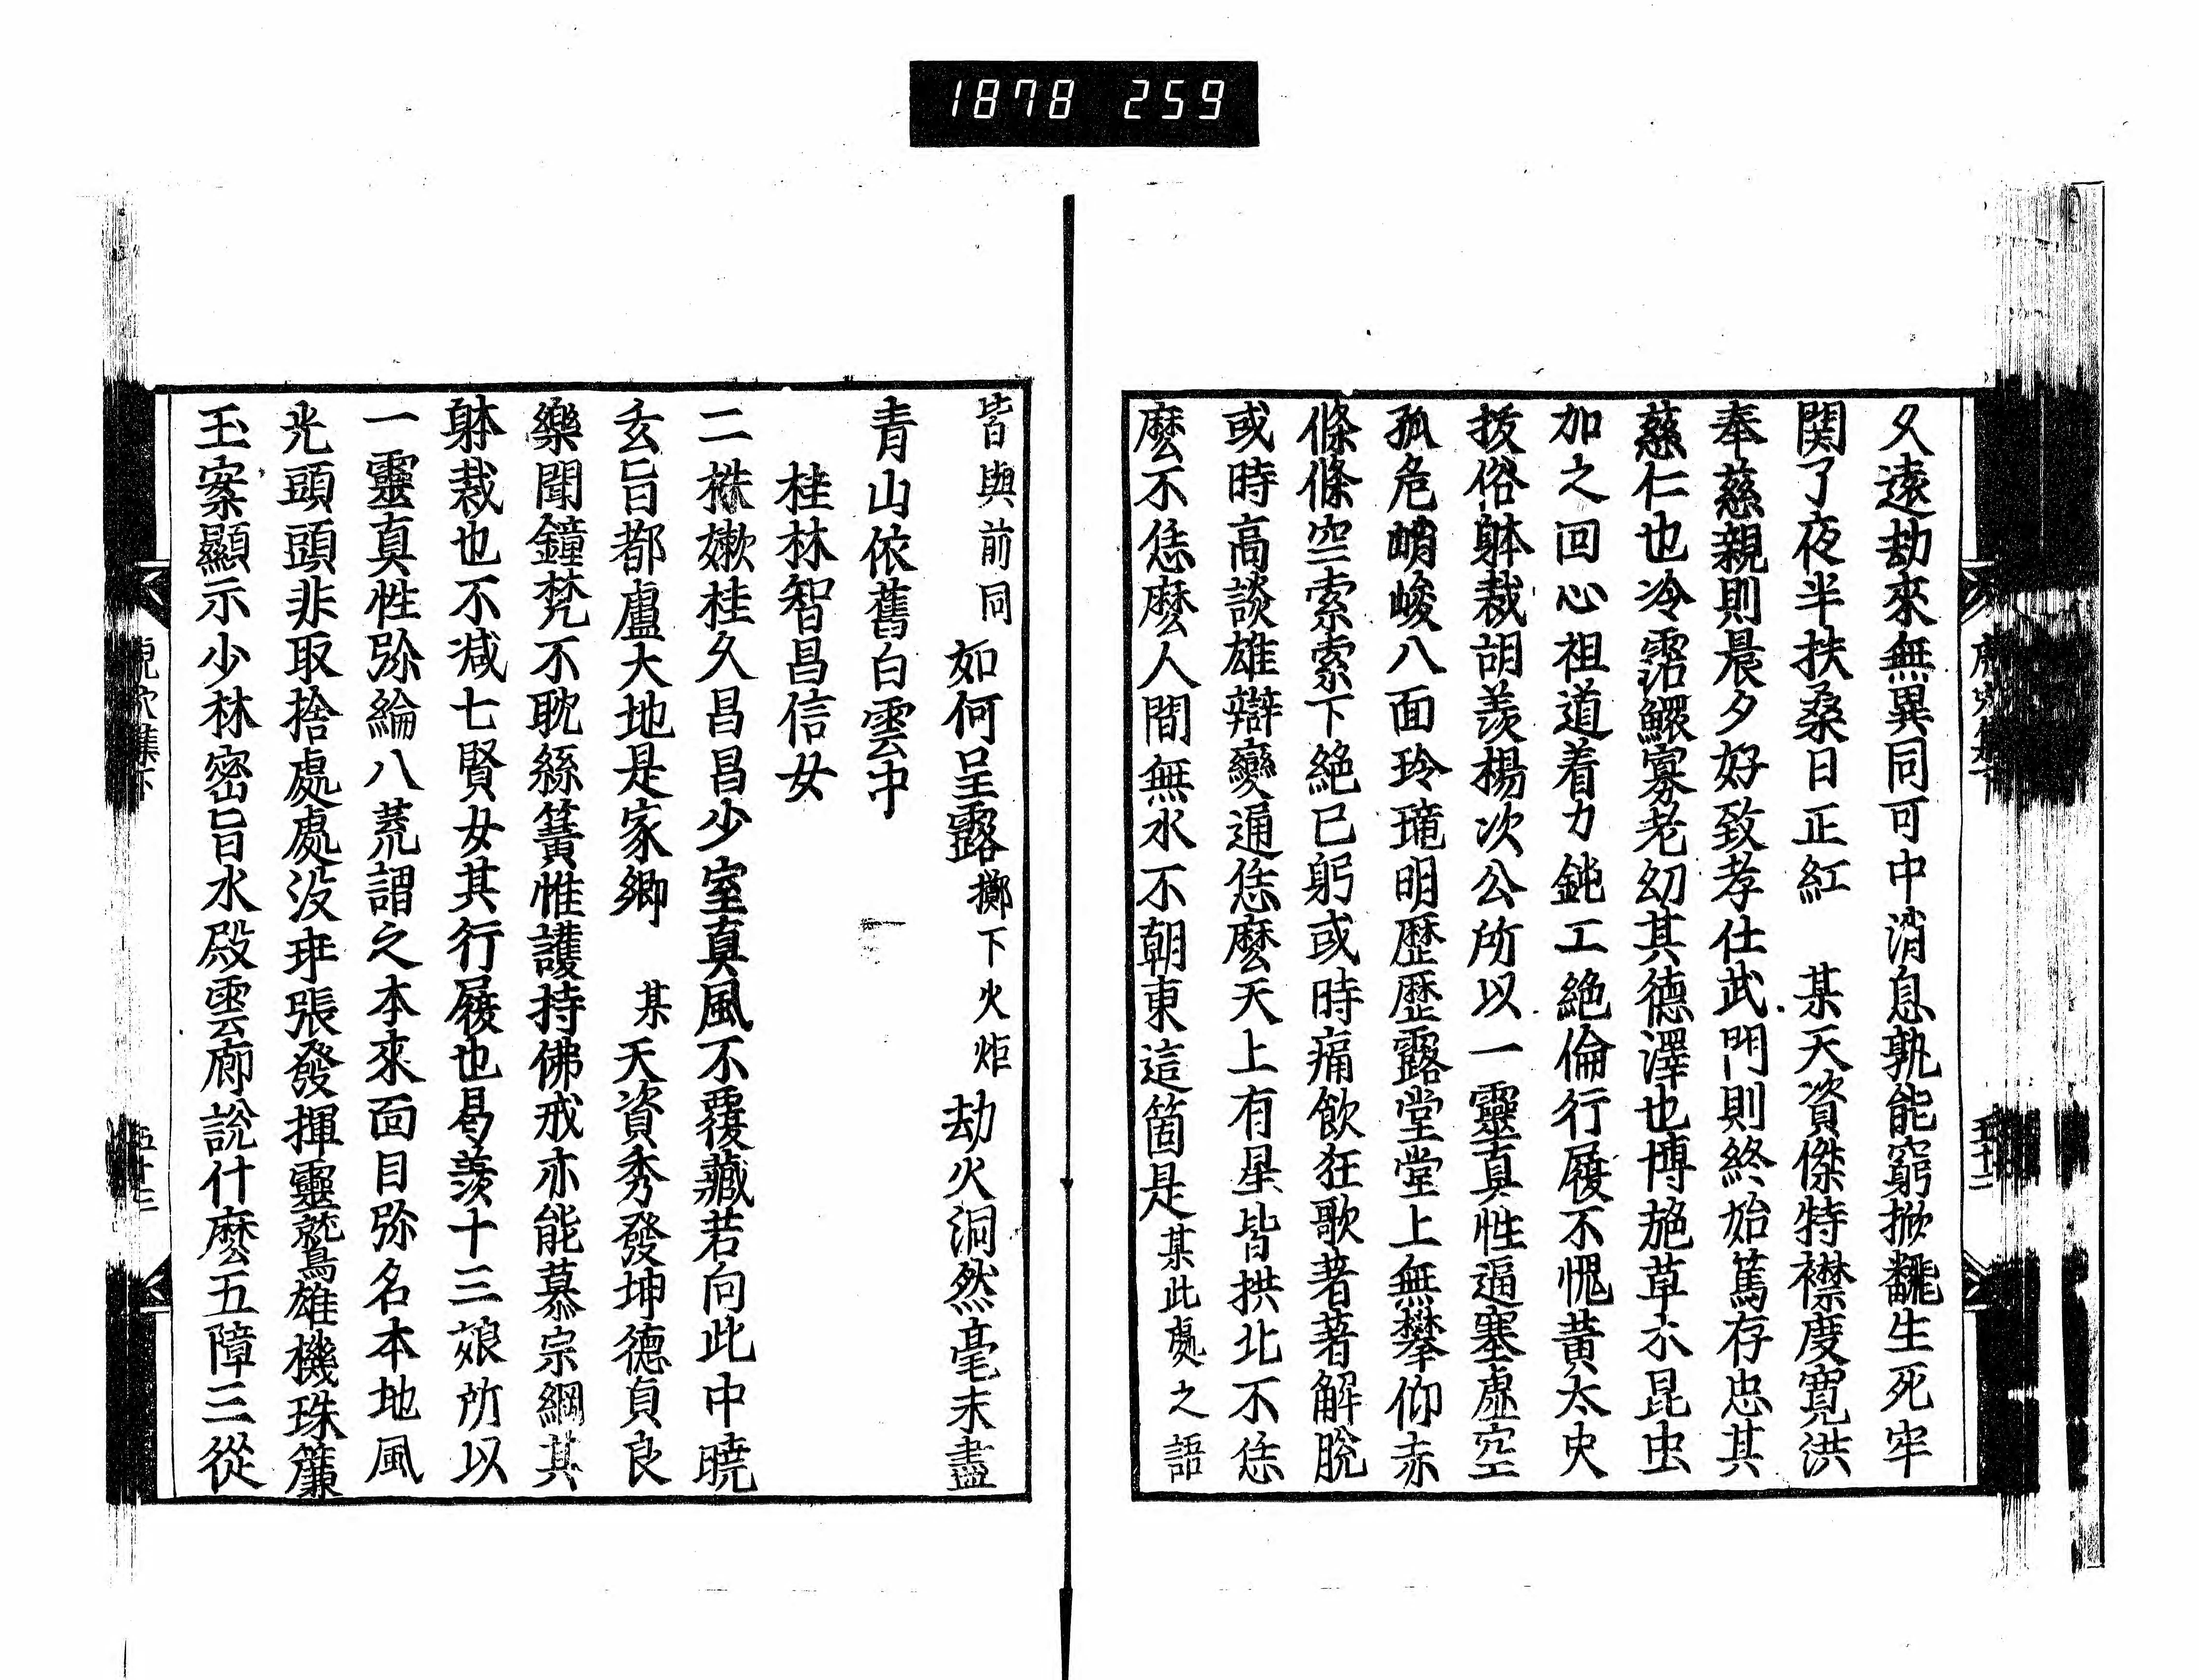 1878 259
久遠劫來無異同可中消息孰能窮掀飜生死牢
関了夜半扶桑日正紅　某天資傑特襟度寬洪
奉慈親則晨夕好致孝仕武門則終始篤存忠其
慈仁也冷霑鰥寡老幼其德澤也博施草木昆虫
加之回心祖道着力鈍工絶倫行履不愧黃太史
拔俗躰裁胡羨楊次公所以一靈真性逼塞虛空
孤危峭峻八面玲瓏明歷歷露堂堂上無攀仰赤
條條空索索下絶已躬或時痛飲狂歌著著解脫
或時高談雄辯變通恁麽天上有星皆拱北不恁
麽不恁麽人間無水不朝東這箇是某此處之語
皆與前同如何呈露擲下火炬劫火洞然毫末盡
青山依舊白雲中
桂林智昌信女
二株嫩桂久昌昌少室真風不覆藏若向此中曉
玄旨都盧大地是家鄉　某天資秀發坤德貞良
樂聞鐘梵不耽絲簧惟護持佛戒亦能慕宗綱其
躰裁也不减七賢女其行履也曷羨十三娘所以
一靈真性弥綸八荒謂之本來面目弥名本地風
光頭頭非取捨處處沒乖張發揮靈鷲雄機珠簾
玉案顯示少林密旨水殿雲廊説什麽五障三從